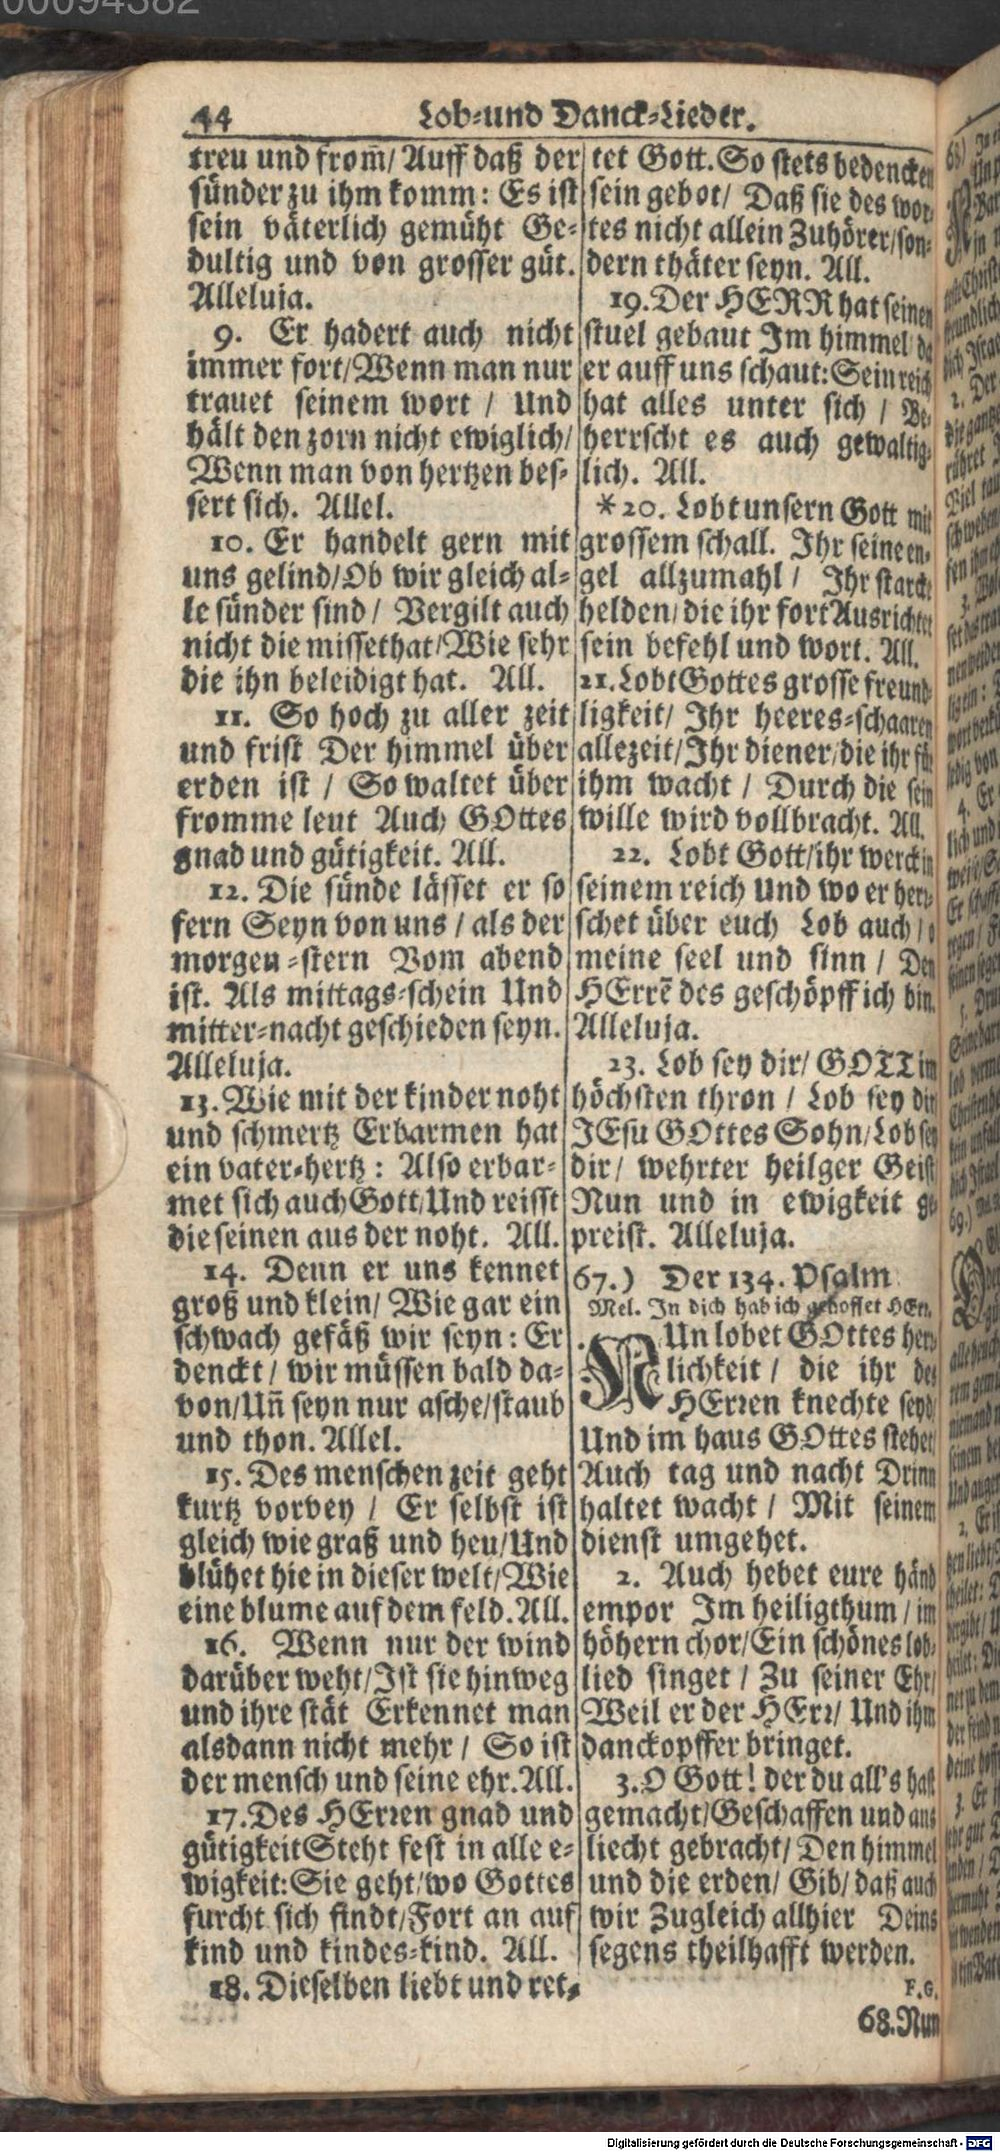 00094382
44 Lob-und Danck-Lieder.
treu und from̃/ Auff daß der
sünder zu ihm komm: Es ist
sein väterlich gemüht Ge-
dultig und von grosser güt.
Alleluja.
9. Er hadert auch nicht
immer fort/Wenn man nur
trauet seinem wort / Und
hält den zorn nicht ewiglich/
Wenn man von hertzen bes-
sert sich. Allel.
10. Er handelt gern mit
uns gelind/Ob wir gleich al-
le sünder sind / Vergilt auch
nicht die missethat/Wie sehr
die ihn beleidigt hat. All.
11. So hoch zu aller zeit
und frist Der himmel über
erden ist / So waltet über
fromme leut Auch GOttes
gnad und gütigkeit. All.
12. Die sünde lässet er so
fern Seyn von uns / als der
morgen-stern Vom abend
ist. Als mittags-schein Und
mitter-nacht geschieden seyn.
Alleluja.
13. Wie mit der kinder noht
und schmertz Erbarmen hat
ein vater-hertz: Also erbar-
met sich auch Gott/Und reisst
die seinen aus der noht. All.
14. Denn er uns kennet
groß und klein/ Wie gar ein
schwach gefäß wir seyn: Er
denckt / wir müssen bald da-
von/Uñ seyn nur asche/staub
und thon. Allel.
15. Des menschen zeit geht
kurtz vorbey / Er selbst ist
gleich wie graß und heu/Und
blühet hie in dieser welt/Wie
eine blume auf dem feld. All.
16. Wenn nur der wind
darüber weht/Ist sie hinweg
und ihre stät Erkennet man
alsdann nicht mehr / So ist
der mensch und seine ehr. All.
17. Des HErren gnad und
gütigkeit Steht fest in alle e-
wigkeit: Sie geht/wo Gottes
furcht sich findt/Fort an auf
kind und kindes-kind. All.
18. Dieselben liebt und ret-
tet Gott. So stets bedencken
sein gebot/ Daß sie des wor-
tes nicht allein Zuhörer/son-
dern thäter seyn. All.
19. Der HERR hat seinen
stuel gebaut Im himmel da
er auff uns schaut: Sein reich
hat alles unter sich / Be-
herrscht es auch gewaltig-
lich. All.
*20. Lobt unsern Gott mit
grossem schall. Ihr seine en-
gel allzumahl / Ihr starcke
helden/die ihr fort Ausrichtet
sein befehl und wort. All.
21. Lobt Gottes grosse freund-
ligkeit/ Ihr heeres-schaaren
allezeit/Ihr diener/die ihr für
ihm wacht / Durch die sein
wille wird vollbracht. All.
22. Lobt Gott/ihr werck in
seinem reich Und wo er herr-
schet über euch Lob auch / o
meine seel und sinn / Den
HErrẽ des geschöpff ich bin.
Alleluja.
23. Lob sey dir/ GOTT im
höchsten thron / Lob sey dir
JEsu GOttes Sohn/Lob sey
dir/ wehrter heilger Geist
Nun und in ewigkeit ge-
preist. Alleluja.
67.) Der 134. Psalm
Mel. In dich hab ich gehoffet HErr.
NUn lobet GOttes herr-
lichkeit / die ihr des
HErren knechte seyd/
Und im haus GOttes stehet/
Auch tag und nacht Drinn
haltet wacht / Mit seinem
dienst umgehet.
2. Auch hebet eure händ
empor Im heiligthum / im
höhern chor/Ein schönes lob-
lied singet / Zu seiner Ehr/
Weil er der HErr/ Und ihm
danckopffer bringet.
3. O Gott! der du all's hast
gemacht/Geschaffen und ans
liecht gebracht/ Den himmel
und die erden/ Gib/ daß auch
wir Zugleich allhier Deins
segens theilhafft werden.
F. G.
68. Nun
Digitalisierung gefördert durch die Deutsche Forschungsgemeinschaft - DFG